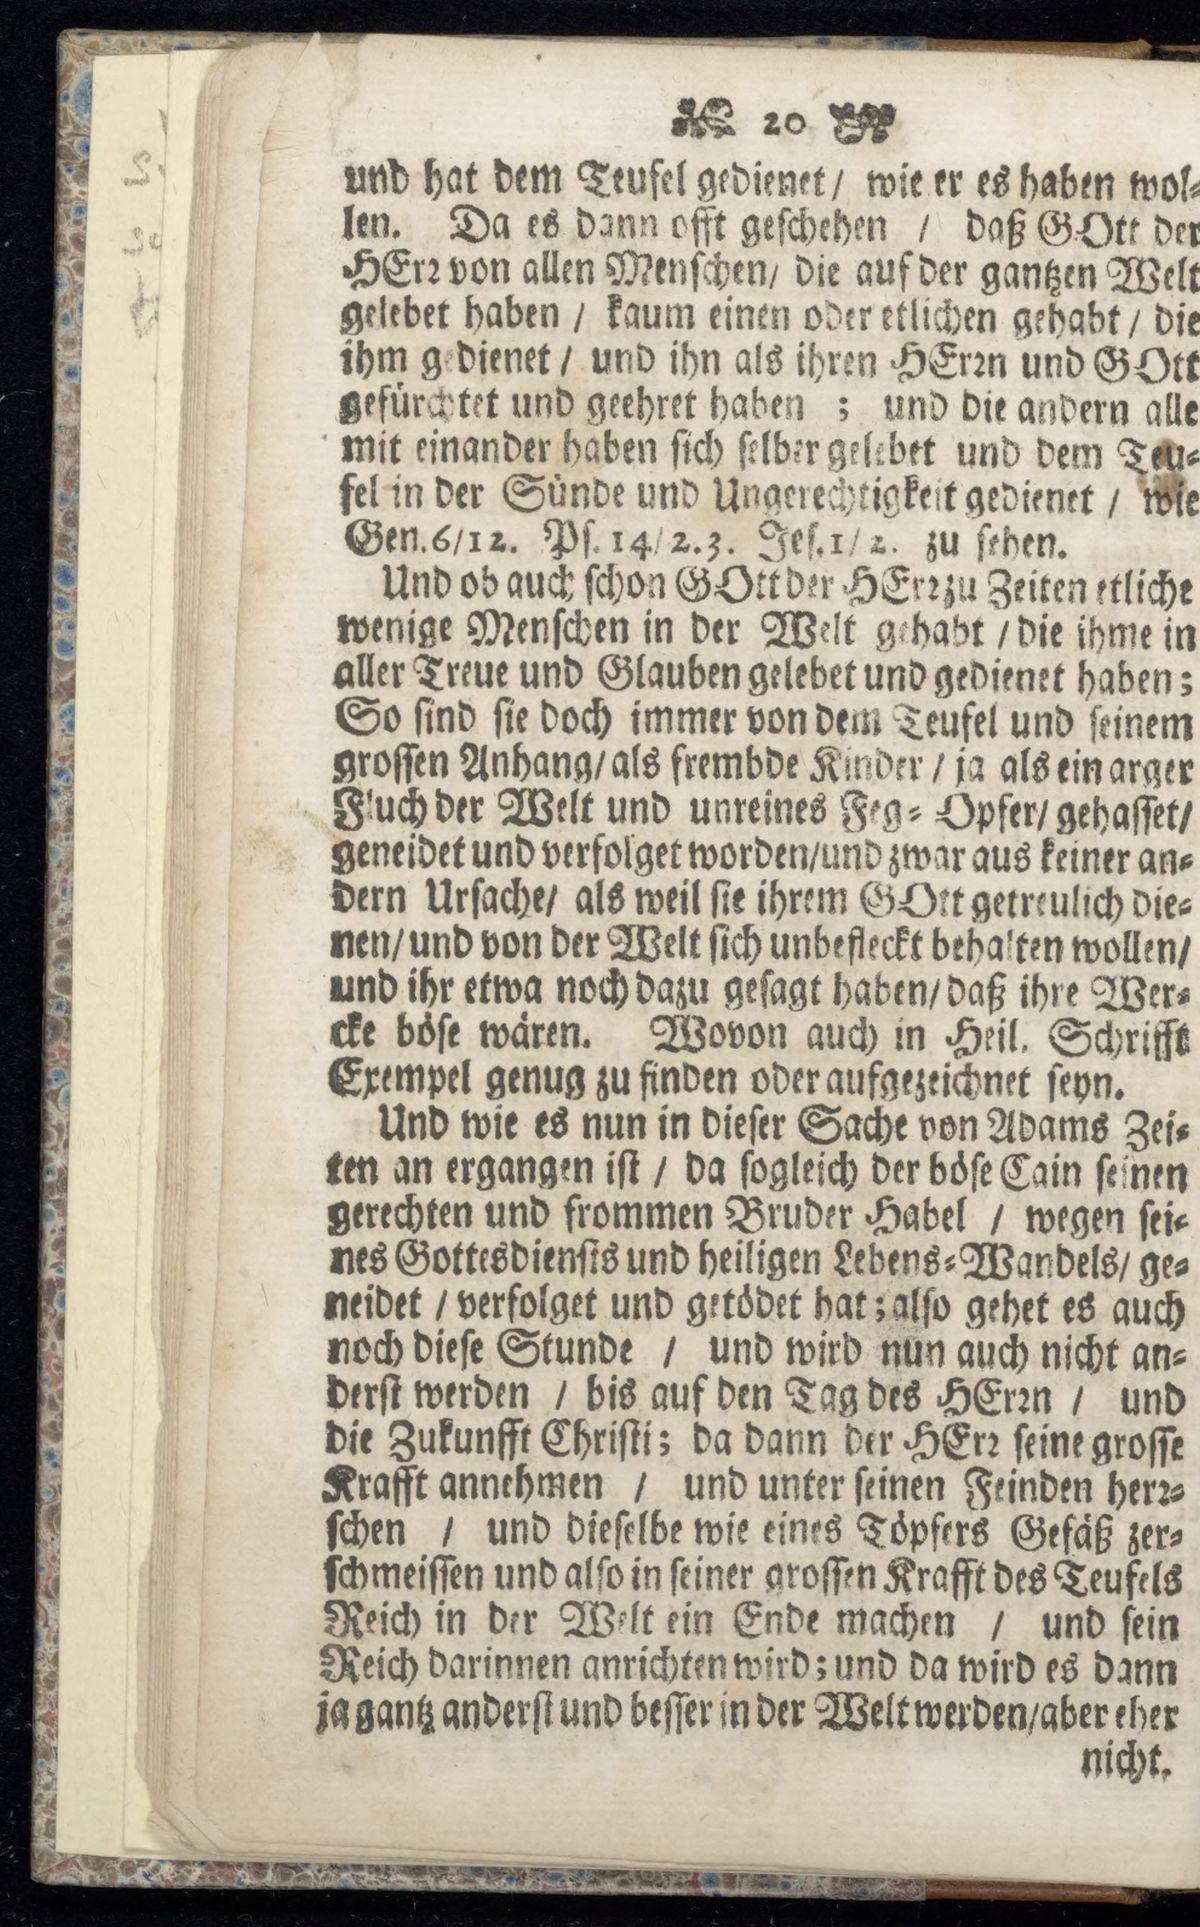 20
und hat dem Teufel gedienet / wie er es haben wol-
len. Da es dann offt geschehen / daß GOtt der
HErr von allen Menschen / die auf der gantzen Welt
gelebet haben / kaum einen oder etlichen gehabt / die
ihm gedienet / und ihn als ihren HErrn und GOtt
gefürchtet und geehret haben ; und die andern alle
mit einander haben sich selber gelebet und dem Teu-
fel in der Sünde und Ungerechtigkeit gedienet / wie
Gen. 6/12. Ps. 14/2.3. Jes. 1/2. zu sehen.
Und ob auch schon GOtt der HErr zu Zeiten etliche
wenige Menschen in der Welt gehabt / die ihme in
aller Treue und Glauben gelebet und gedienet haben;
So sind sie doch immer von dem Teufel und seinem
grossen Anhang / als frembde Kinder / ja als ein arger
Fluch der Welt und unreines Feg-Opfer / gehasset /
geneidet und verfolget worden / und zwar aus keiner an-
dern Ursache / als weil sie ihrem GOtt getreulich die-
nen / und von der Welt sich unbefleckt behalten wollen /
und ihr etwa noch dazu gesagt haben / daß ihre Wer-
cke böse wären. Wovon auch in Heil. Schrifft
Exempel genug zu finden oder aufgezeichnet seyn.
Und wie es nun in dieser Sache von Adams Zei-
ten an ergangen ist / da sogleich der böse Cain seinen
gerechten und frommen Bruder Habel / wegen sei-
nes Gottesdiensts und heiligen Lebens-Wandels / ge-
neidet / verfolget und getödet hat; also gehet es auch
noch diese Stunde / und wird nun auch nicht an-
derst werden / bis auf den Tag des HErrn / und
die Zukunfft Christi; da dann der HErr seine grosse
Krafft annehmen / und unter seinen Feinden herr-
schen / und dieselbe wie eines Töpfers Gefäß zer-
schmeissen und also in seiner grossen Krafft des Teufels
Reich in der Welt ein Ende machen / und sein
Reich darinnen anrichten wird; und da wird es dann
ja gantz anderst und besser in der Welt werden / aber eher
nicht.